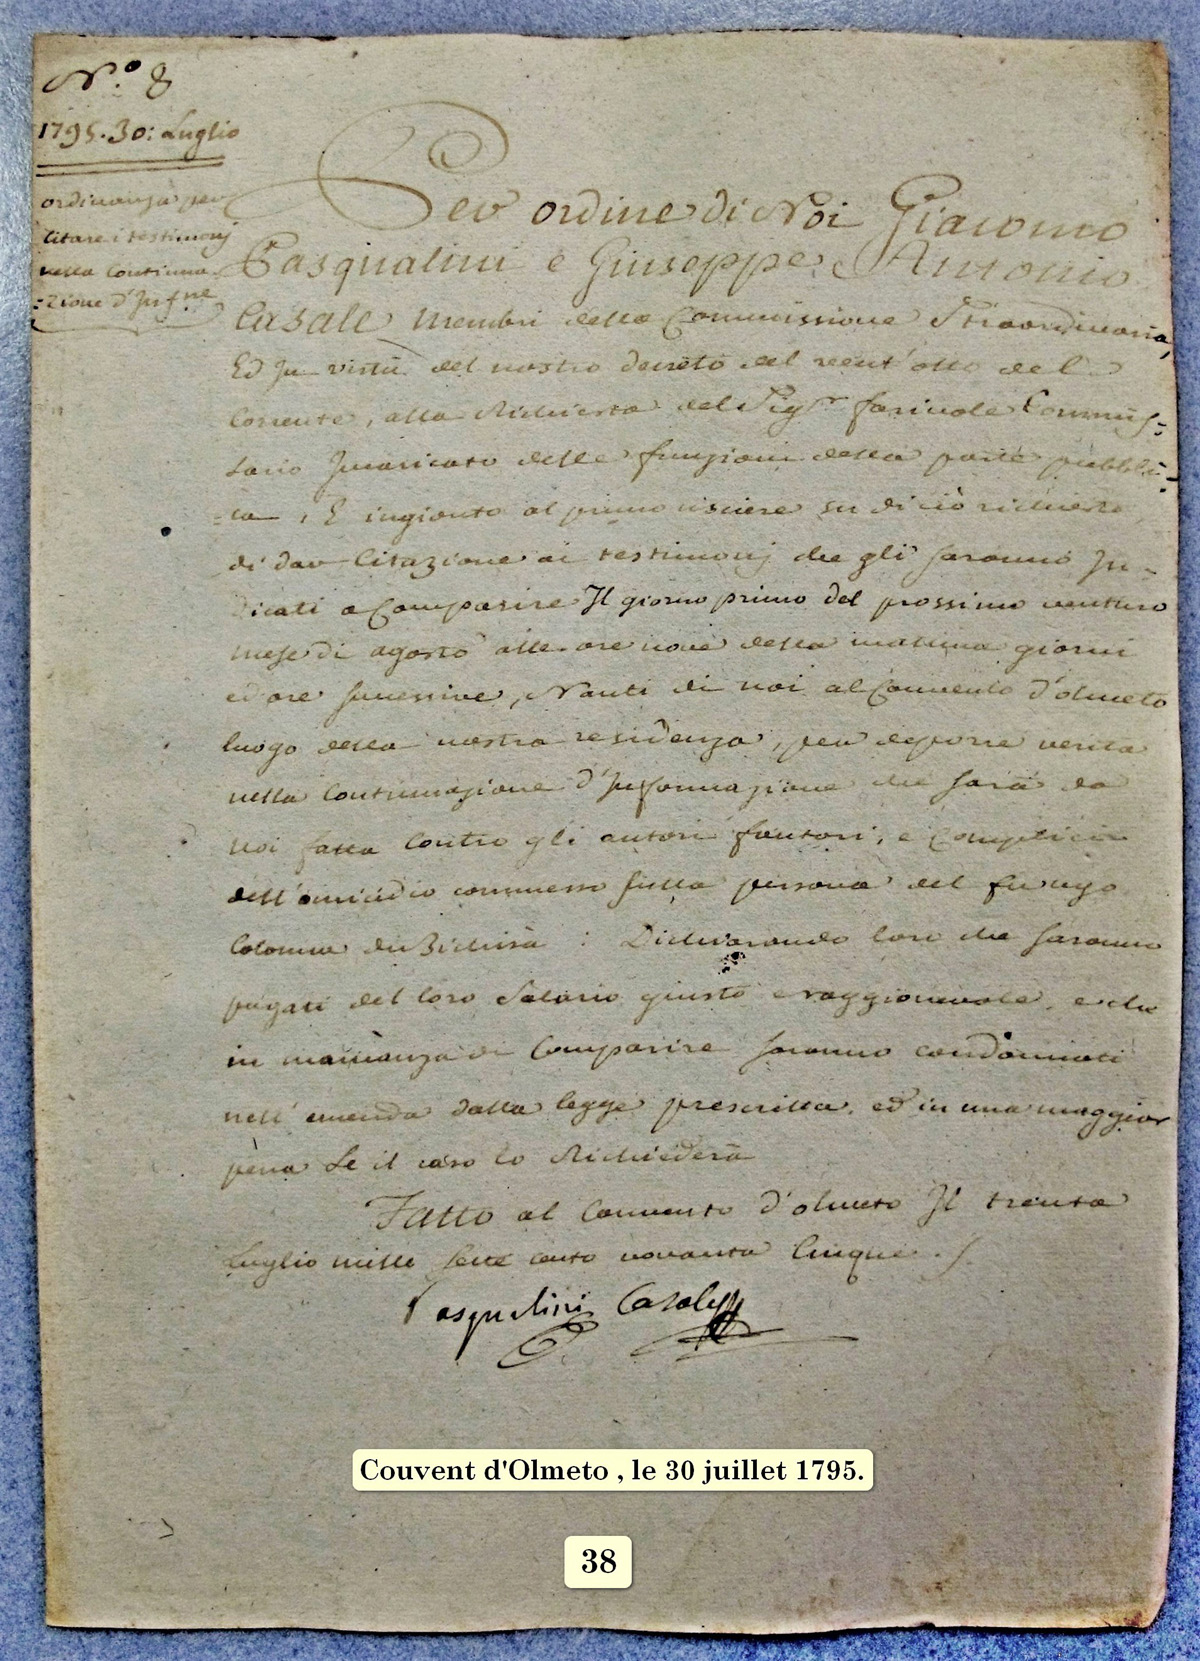 N.º 8
1795. 30: Luglio
ordinanza per
citare i testimonj
nella Continua-
=zione d'Inf.ne
Per ordine di Noi Giacomo
Pasqualini e Giuseppe Antonio
Casale membri della Commissione Straordinaria,
Ed In virtù del nostro decreto del vent'otto del
Corrente, alla Richiesta del Sigr farinole Commis=
sario Incaricato delle funzioni della parte pubbli=
=ca, È ingionto al primo usciere su di ciò richiesto,
di dar Citazione ai testimonj che gli saranno In-
dicati a Comparire Il giorno primo del prossimo venturo
mese di agosto alle ore nove della mattina giorni
ed ore successive, Nanti di noi al Convento d'olmeto
luogo della nostra residenza, per deporre verità
nella Continuazione d'Informazione che sarà da
noi fatta Contro gli autori fautori, e Complici
dell'omicidio commesso sulla persona del fu ugo
Colonna di Bichisà : Dichiarando loro che saranno
pagati del loro Salario giusto e raggionevole, e che
in mancanza di Comparire saranno condannati
nell'emenda dalla legge prescritta, ed in una maggior
pena Se il caso lo Richiederà
Fatto al Convento d'olmeto Il trenta
Luglio mille sette cento novanta Cinque. /
Pasqualini Casale
Couvent d'Olmeto , le 30 juillet 1795.
38